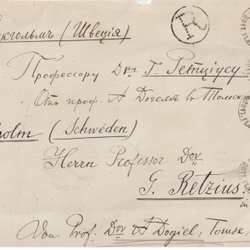 окгольмъ (Швеція)
T
Профессору Dr. Г. Ретціусу
Отъ проф. А Догеля въ Томск
holm (Schweden)
Herrn Professor Dor
G. Retzius
Von Prof. Dor A Dogiel, Tomsk